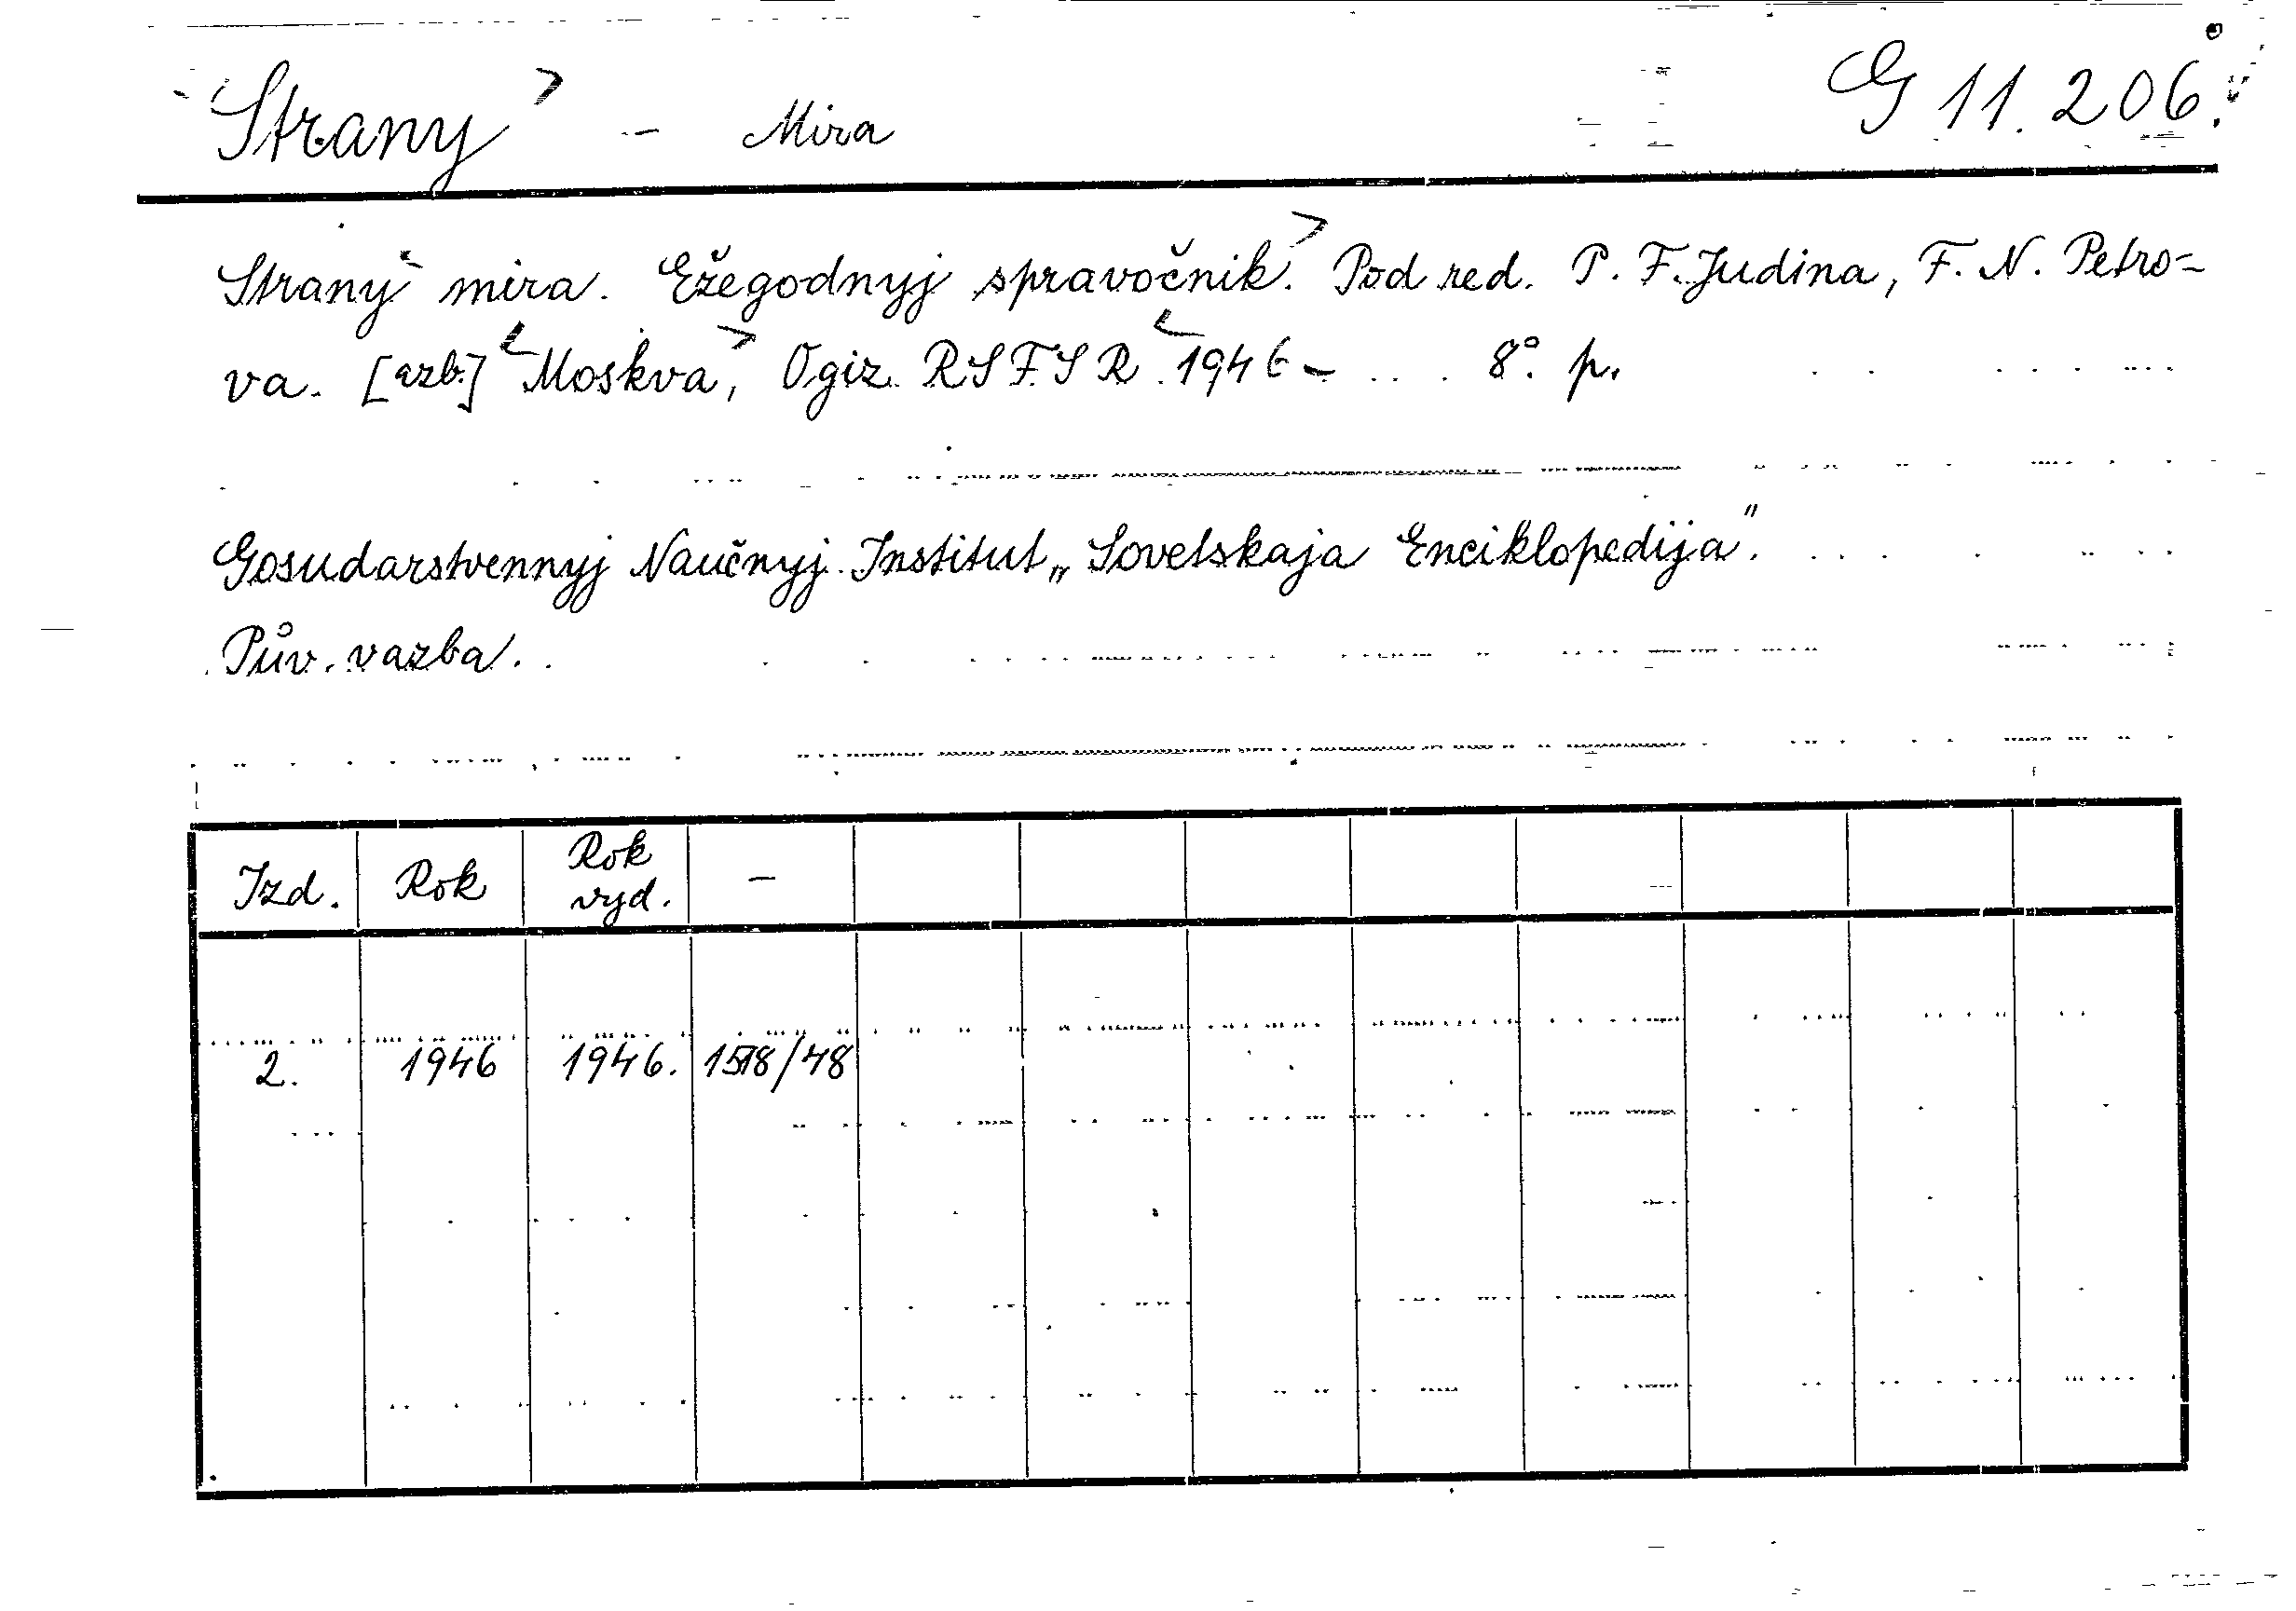 Strany – Mira G 11.206.
Strany mira. Ežegodnyj spravočnik. Pod red. P. F. Judina, F. N. Petro-
va. [azb.] Moskva, Ogiz RSFSR 1946 – ... 8°. p.
Gosudarstvennyj Naučnyj Institut „Sovetskaja Enciklopedija".
Pův. vazba.
Izd. Rok Rok vyd. –
2. 1946 1946.